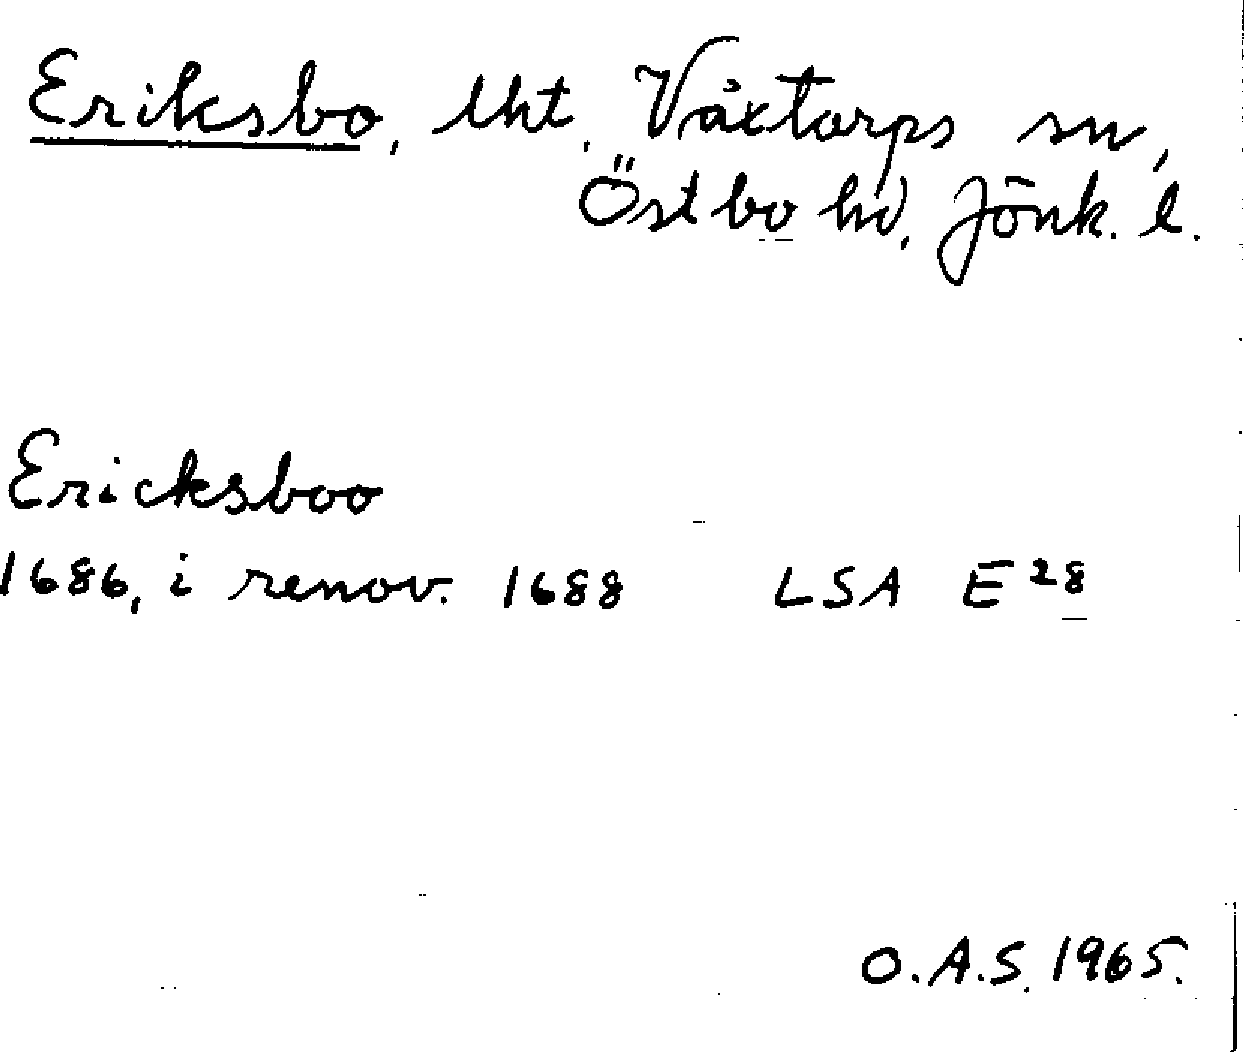 Eriksbo, lht, Våxtorps sn,
Östbo hd, Jönk. l.
Ericksboo
1686, i renov. 1688 LSA E 28
O.A.S. 1965.